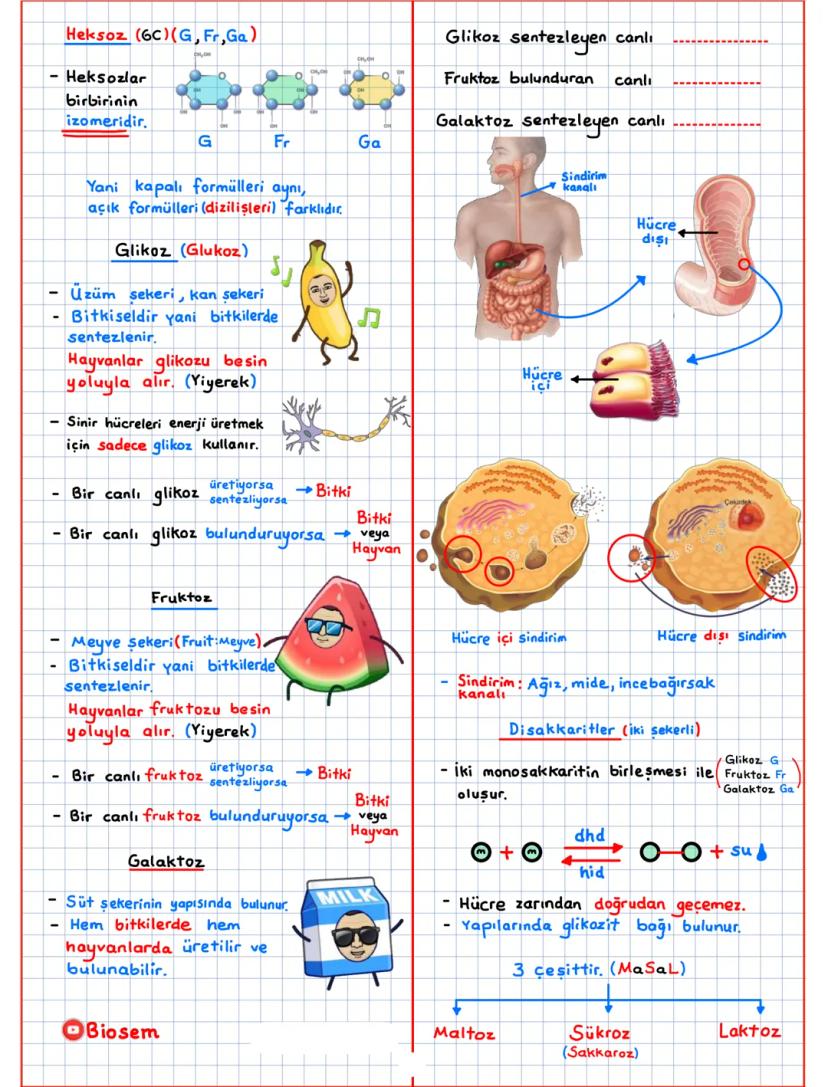 Heksoz (6C)(G, Fr, Ga)
- Heksozlar
birbirinin
izomeridir.
G
Fr
Ga
Yani kapalı formülleri aynı,
açık formülleri (dizilişleri) farklıdır.
Glikoz (Glukoz)
- Üzüm şekeri, kan şekeri
- Bitkiseldir yani bitkilerde
sentezlenir.
Hayvanlar glikozu besin
yoluyla alır. (Yiyerek)
- Sinir hücreleri enerji üretmek
için sadece glikoz kullanır.
- Bir canlı glikoz üretiyorsa
sentezliyorsa → Bitki
- Bir canlı glikoz bulunduruyorsa →
Bitki
veya
Hayvan
Fruktoz
- Meyve şekeri (Fruit:Meyve)
- Bitkiseldir yani bitkilerde
sentezlenir.
Hayvanlar fruktozu besin
yoluyla alır. (Yiyerek)
- Bir canlı fruktoz üretiyorsa
sentezliyorsa → Bitki
- Bir canlı fruktoz bulunduruyorsa →
Bitki
veya
Hayvan
Galaktoz
- Süt şekerinin yapısında bulunur.
- Hem bitkilerde hem
hayvanlarda üretilir ve
bulunabilir.
MILK
Biosem
Glikoz sentezleyen canlı ...............
Fruktoz bulunduran canlı ...............
Galaktoz sentezleyen canlı ...............
Sindirim
kanalı
Hücre
dışı
Hücre
içi
Çekirdek
Hücre içi sindirim
Hücre dışı sindirim
- Sindirim : Ağız, mide, incebağırsak
kanalı
Disakkaritler (iki şekerli)
- İki monosakkaritin birleşmesi ile
oluşur.
(Glikoz G
Fruktoz Fr
Galaktoz Ga)
m + m
dhd
hid
+ su
- Hücre zarından doğrudan geçemez.
- Yapılarında glikozit bağı bulunur.
3 çeşittir. (MaSaL)
Maltoz
Sükroz
(Sakkaroz)
Laktoz